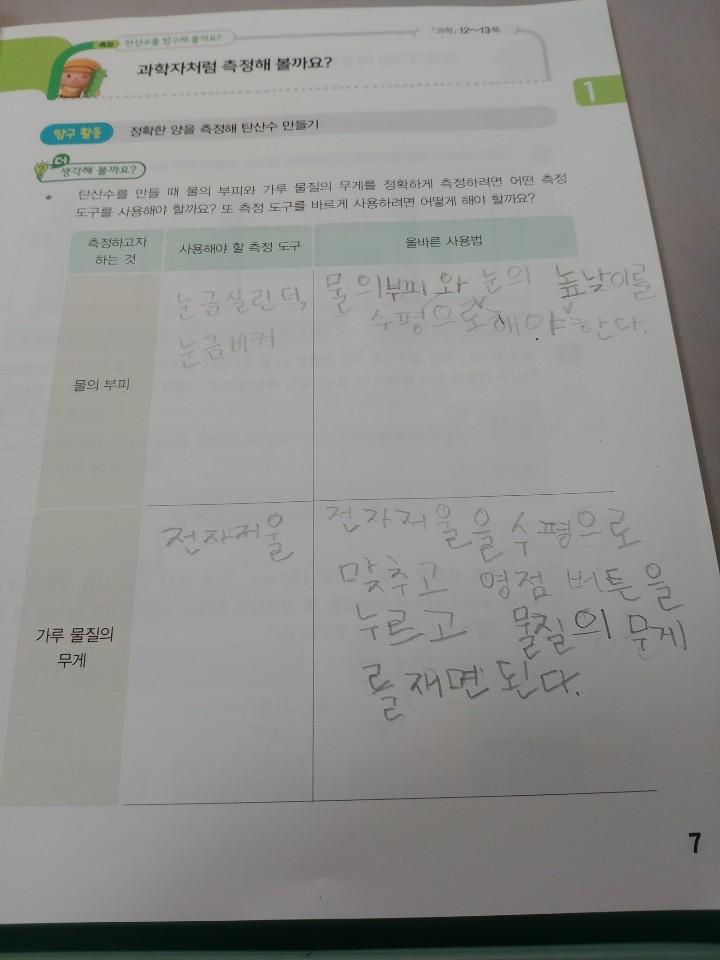 측정 탄산수를 탐구해 볼까요?
『과학』 12~13쪽
과학자처럼 측정해 볼까요?
1
탐구 활동 정확한 양을 측정해 탄산수 만들기
더
생각해 볼까요?
• 탄산수를 만들 때 물의 부피와 가루 물질의 무게를 정확하게 측정하려면 어떤 측정
도구를 사용해야 할까요? 또 측정 도구를 바르게 사용하려면 어떻게 해야 할까요?
측정하고자
하는 것
사용해야 할 측정 도구
올바른 사용법
물의 부피
눈금실린더,
눈금비커
물의부피와 눈의 높낮이를
수평으로 해야 한다.
가루 물질의
무게
전자저울
전자저울을 수평으로
맞추고 영점 버튼을
누르고 물질의 무게
를 재면 된다.
7